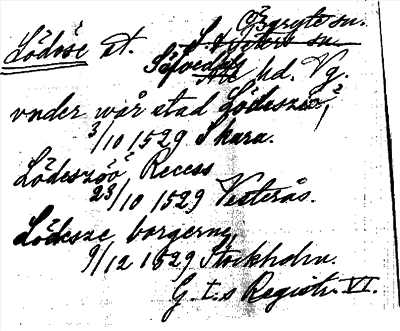 Örgryte sn.
Lödöse st. S. t Peters sn.
Säfvedals hd. Vg.
vnder wår stad Lödeszöö,
3/10 1529 Skara.
Lödeszöö Recess
23/10 1529 Vesterås.
Lödesze borgerny
9/12 1529 Stockholm.
G. I:s Registr. VI.